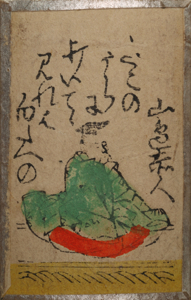 山邊赤人
たこの
うらに
打いてゝ
みれは
白たへの